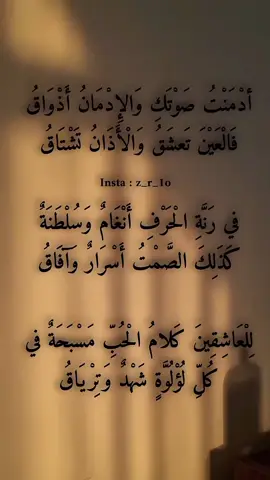 أدْمَنْتُ صَوْتَكِ وَالإِدْمَانُ أَذْوَاقُ
فَالْعَيْنَ تَعشَقُ وَالْأَذَانُ تَشْتَاقُ
Insta : z_r_1o
في رَنَّةِ الْحَرْفِ أَنْغَامٌ وَسُلْطَنَةٌ
كَذَلِكَ الصَّمْتُ أَسْرَارٌ وَآفَاقُ
لِلْعَاشِقِينَ كَلامُ الْحُبِّ مَسْبَحَةٌ في
كُلِّ لُؤْلُوَّةٍ شَهْدٌ وَتِرْيَاقُ